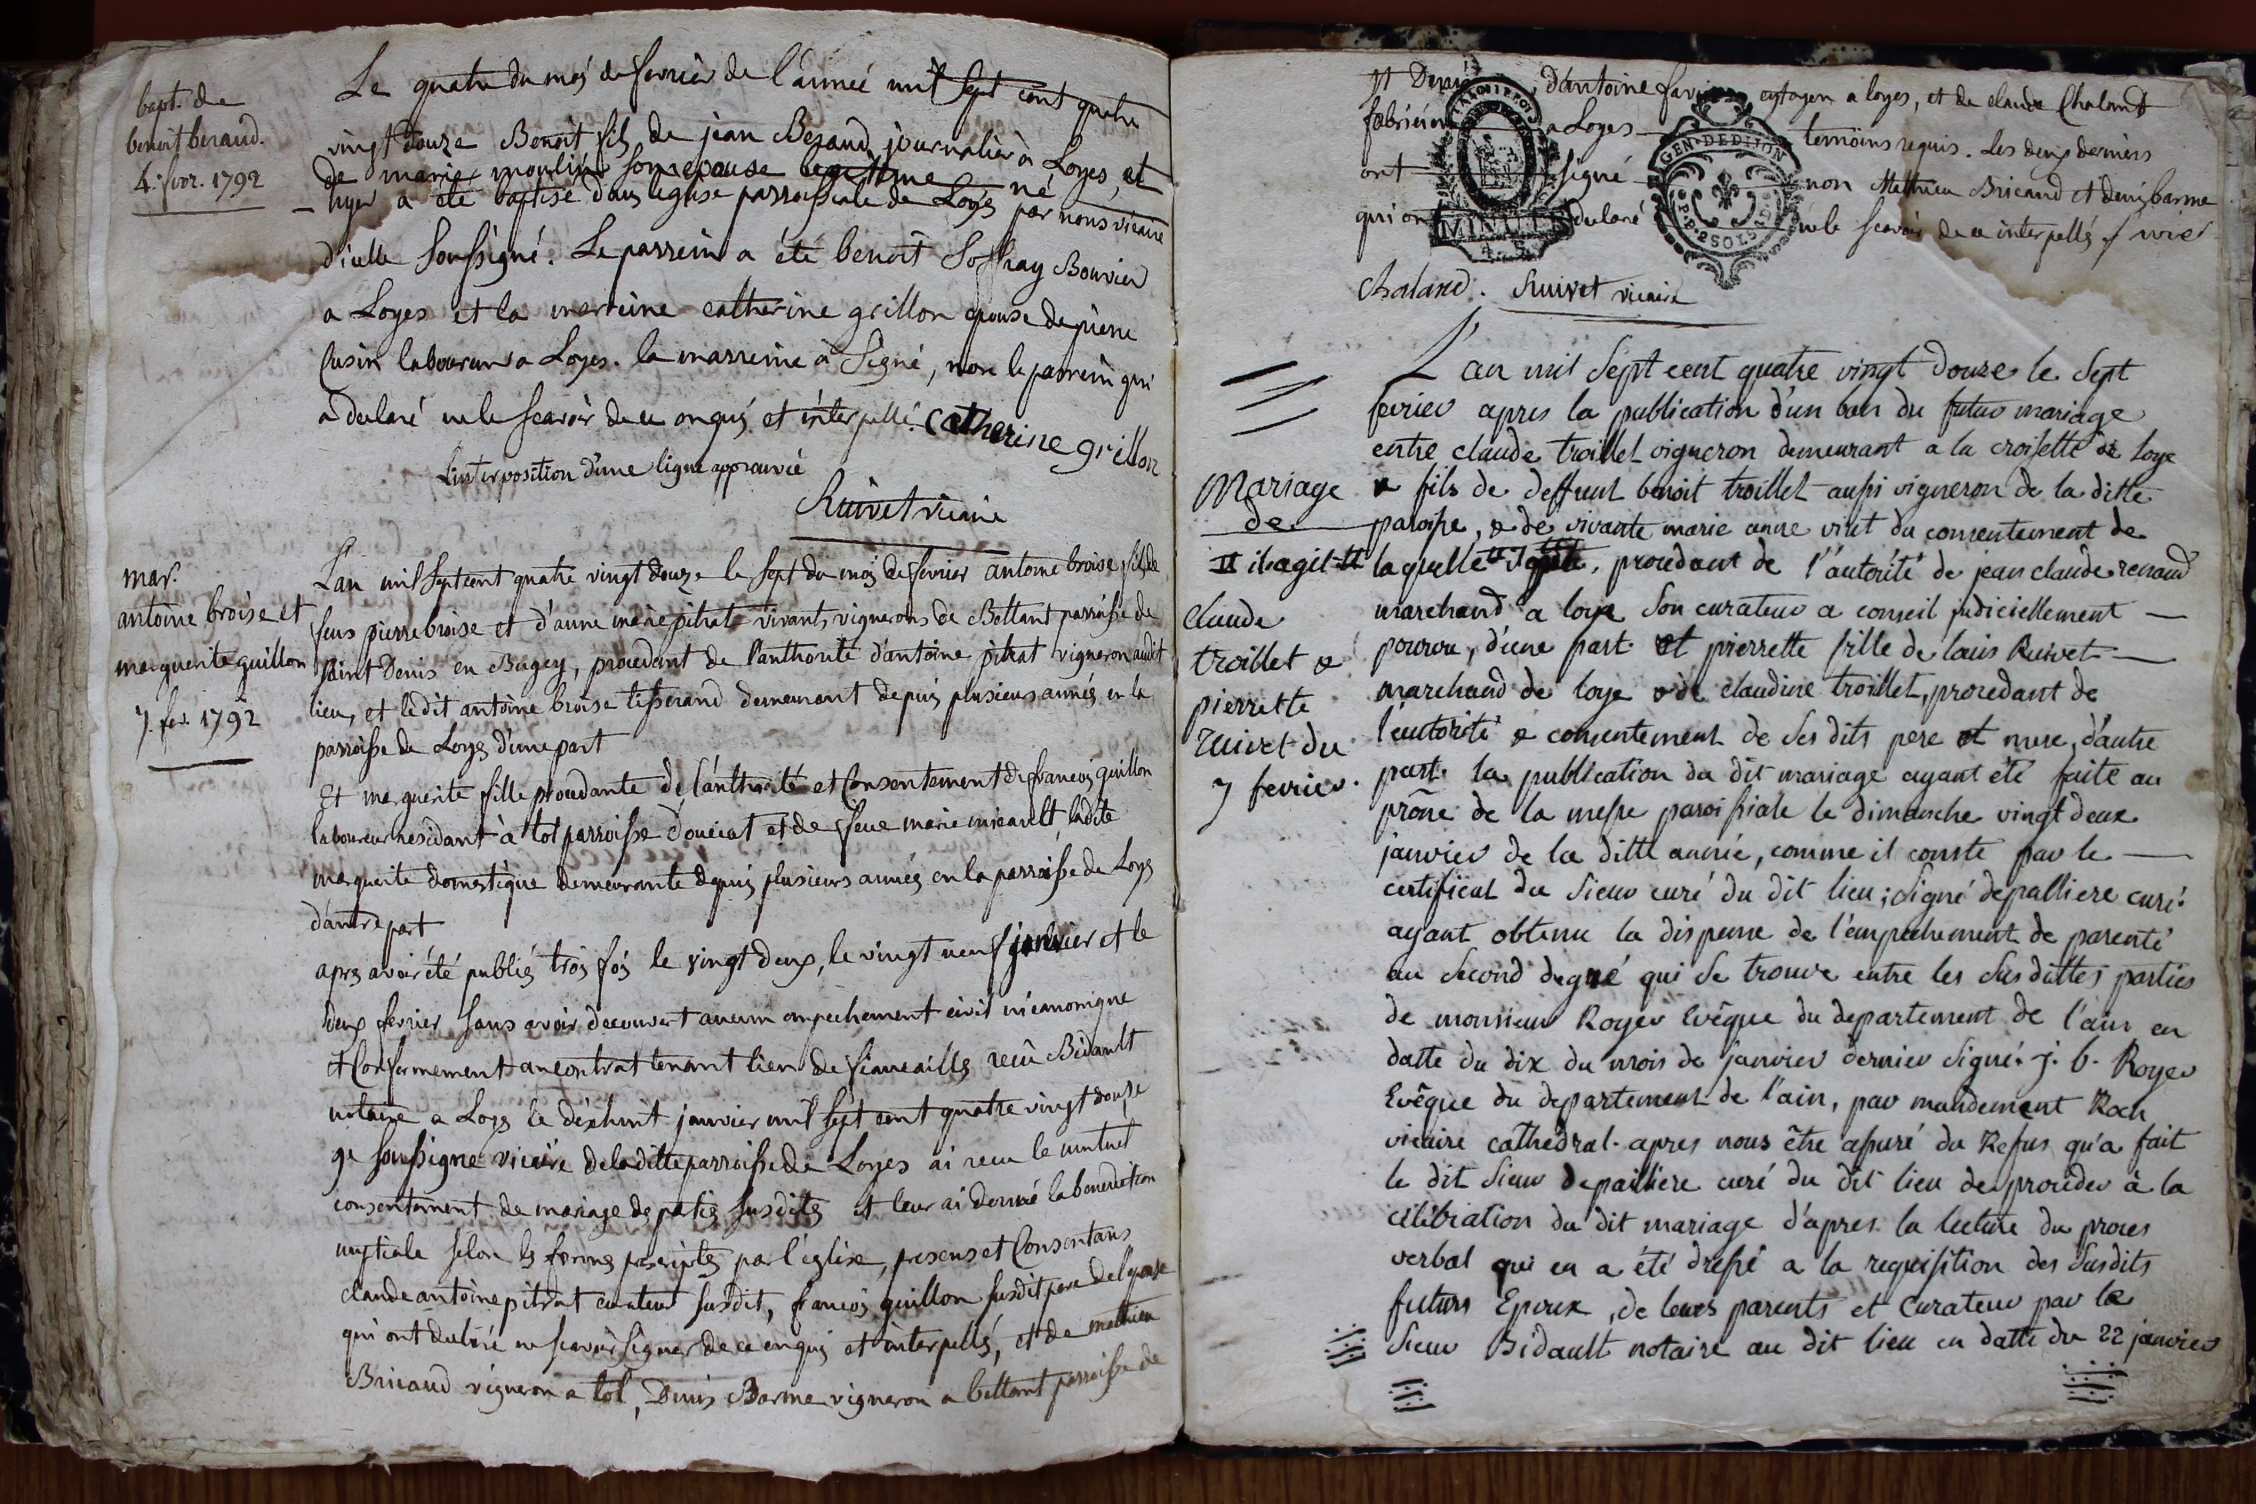 bapt. de
benoit beraud.
4. fevr. 1792
Le quatre du mois de fevrier de l'année mil sept cent quatre
vingt douze Benoit fils de jean Beraud journalier à Loyes, et
de marie moulin son epouse legitime né
hyer a été baptisé dans l'eglise parroissiale de Loyes par nous vicaire
d'icelle soussigné. Le parrein a été benoit Soffray Bouvier
a Loyes et la marreine catherine grillon epouse de pierre
Cusin laboureur a Loyes. la marreine à signé, non le parrein qui
a declaré ne le scavoir de ce enquis et interpellé. catherine grillon
l'interposition d'une ligne approuvée
Ruivet vicaire
mar.
antoine broise et
marguerite guillon
7. fev. 1792
L'an mil sept cent quatre vingt douze le sept du mois de fevrier antoine broise fils de
feus pierre broise et d'anne marie pitrat vivants vignerons de Bettant parroisse de
saint Denis en Bugey, procedant de l'authorité d'antoine pitrat vigneron audit
lieu, et ledit antoine broise tisserand demeurant depuis plusieurs années en la
parroisse de Loyes d'une part
Et marguerite fille procedante de l'authorité et Consentement de francois guillon
laboureur residant à tol parroisse d'ouciat et de feue marie micault, ladite
marguerite domestique demeurante depuis plusieurs années en la parroisse de Loyes
d'autre part
apres avoir été publiés trois fois le vingt deux, le vingt neuf janvier et le
deux fevrier sans avoir decouvert aucun empechement civil ni canonique
et Conformement au contrat tenant lieu de fiancailles recû Bidault
notaire a Loyes le dixhuit janvier mil sept cent quatre vingt douze
je soussigné vicaire de la ditte parroisse de Loyes ai recu le mutuel
consentement de mariage des parties susdites et leur ai donné la benediction
nuptiale selon les formes prescriptes par l'eglise, presens et Consentans
claude antoine pitrat curateur susdit, francois guillon susdit pere de l'epouse
qui ont declaré ne scavoir signer de ce enquis et interpellés, et de mathieu
Bricaud vigneron a tol, Denis Barme vigneron a bettant parroisse de
st Denis, d'antoine citoyen a loyes, et de claude Chaland
a Loyes temoins requis. Les deux derniers
ont signé non Mathieu Bricaud et denis barme
qui ont declaré ne le scavoir de ce interpellés
GEN. DE DIJON
MINUTE
chaland. Ruivet vicaire
Mariage
de
il agit
claude
troillet &
pierrette
ruivet du
7 fevrier.
L'an mil sept cent quatre vingt douze le sept
fevrier apres la publication d'un ban du futur mariage
entre claude troillet vigneron demeurant a la croisette de loye
& fils de deffunt benoit troillet aussi vigneron de la ditte
paroisse, & de vivante marie anne viret du consentement de
laquelle il agit, procedant de l'autorité de jean claude renaud
marchand a loye son curateur a conseil judiciellement
pourvu, d'une part. et pierrette fille de louis Ruivet
marchand de loye & de claudine troillet, procedant de
l'autorité & consentement de ses dits pere et mere, d'autre
part. la publication du dit mariage ayant été faite au
prône de la messe paroissiale le dimanche vingt deux
janvier de la ditte année, comme il conste par le
certificat du sieur curé du dit lieu; signé depalliere curé.
ayant obtenu la dispense de l'empechement de parenté
au second degré qui se trouve entre les susdittes parties
de monsieur Royer Evêque du departement de l'ain en
datte du dix du mois de janvier dernier signé. j. b. Royer
Evêque du departement de l'ain, par mandement Roch
vicaire cathédral. apres nous être assuré du Refus qu'a fait
le dit sieur depalliere curé du dit lieu de proceder à la
célébration du dit mariage d'apres la lecture du proces
verbal qui en a été dressé a la requisition des susdits
futurs Epoux, de leurs parents et curateur par le
sieur Bidault notaire au dit lieu en datte du 22 janvier